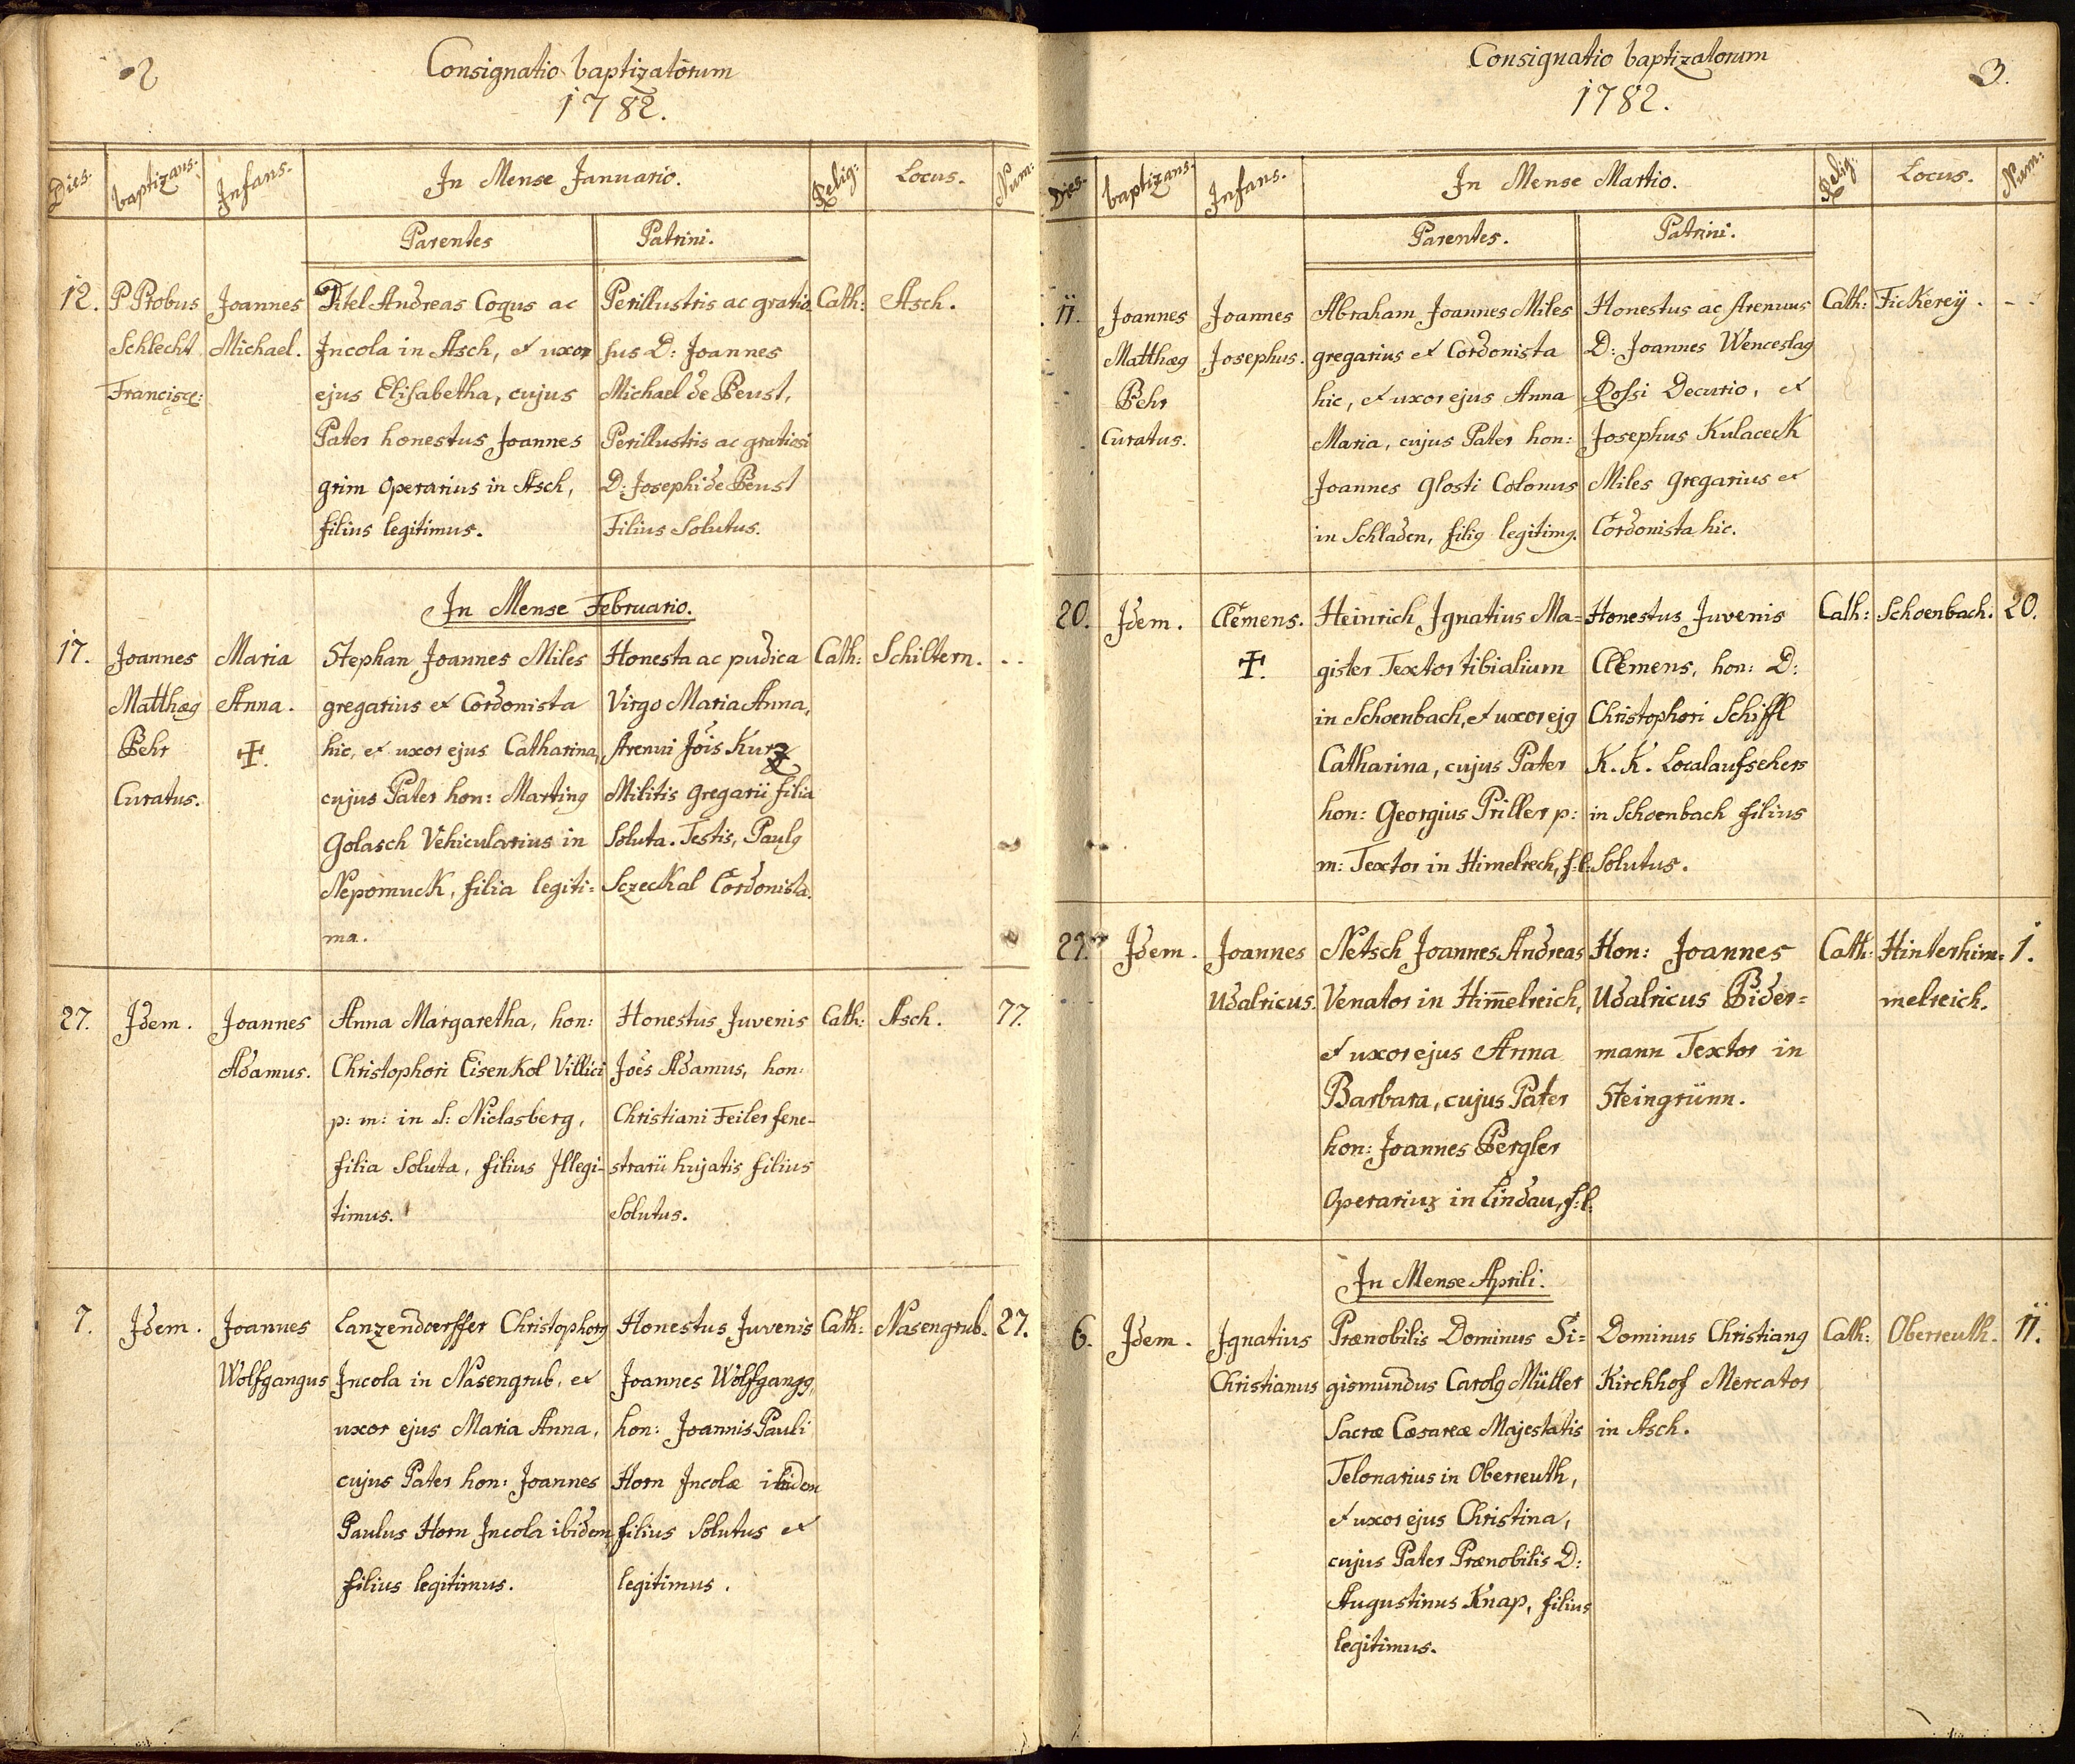 2
Consignatio baptizatorum
1782.
Dies. baptizans. Infans. In Mense Januario. Relig: Locus. Num:
Parentes Patrini.
12. P Probus Joannes Titel Andreas Coqus ac Perillustris ac gratio Cath: Asch.
Schlecht Michael. Incola in Asch, et uxor sus D: Joannes
Francisc: ejus Elisabetha, cujus Michael de Beust,
Pater honestus Joannes Perillustris ac gratiosi
grim Operarius in Asch, D: Josephi de Beust
filius legitimus. Filius Solutus.
In Mense Februario.
17. Joannes Maria Stephan Joannes Miles Honesta ac pudica Cath: Schiltern. - -
Matthæg Anna. gregarius et Cordonista Virgo Maria Anna,
Behr ✠. hic, et uxor ejus Catharina, strenui Jõis Kurz
Curatus. cujus Pater hon: Marting Militis gregarii filia
Golasch Vehicularius in Soluta. Testis, Paulg
Nepomuck, filia legiti= Sczeckal Cordonista.
ma.
27. Idem. Joannes Anna Margaretha, hon: Honestus Juvenis Cath: Asch. 77.
Adamus. Christophori Eisenkol Villici Joẽs Adamus, hon:
p: m: in S: Niclasberg, Christiani Feiler fene-
filia Soluta, filius Illegi- strarii hujatis filius
timus. Solutus.
7. Idem. Joannes Lanzendoerffer Christophorg Honestus Juvenis Cath: Nasengrub. 27.
Wolfgangus Incola in Nasengrub, et Joannes Wolfgangg,
uxor ejus Maria Anna, hon: Joannis Pauli
cujus Pater hon: Joannes Horn Incolæ ibidem
Paulus Horn Incola ibidem, filius Solutus et
filius legitimus. legitimus.
Consignatio baptizatorum
3.
1782.
Dies. baptizans. Infans. In Mense Martio. Relig: Locus. Num:
Parentes. Patrini.
11. Joannes Joannes Abraham Joannes Miles Honestus ac strenuus Cath: Fickerey. - -
Matthæg Josephus. gregarius et Cordonista D: Joannes Wenceslag
Behr hic, et uxor ejus Anna Rossi Decurio, et
Curatus. Maria, cujus Pater hon: Josephus Kulaceck
Joannes Glosti Colonus Miles gregarius et
in Schladen, filig legitimg. Cordonista hic.
20. Idem. Clemens. Heinrich Ignatius Ma= Honestus Juvenis Cath: Schoenbach. 20.
✠. gister Textor tibialium Clemens, hon: D:
in Schoenbach, et uxor ejg Christophori Schiffl
Catharina, cujus Pater K. K. Localaufsehers
hon: Georgius Priller p: in Schoenbach filius
m: Textor in Himelrech, f: l: Solutus.
29. Idem. Joannes Netsch Joannes Andreas Hon: Joannes Cath: Hinterhim= 1.
Udalricus. Venator in Him̅elreich, Udalricus Bider= melreich.
et uxor ejus Anna mann Textor in
Barbara, cujus Pater Steingrünn.
hon: Joannes Bergler
Operarius in Lindau, f: l:
In Mense Aprili.
6. Idem. Ignatius Prænobilis Dominus Si= Dominus Christiang Cath: Oberreuth. 11.
Christianus gismundus Carolg Müller Kirchhof Mercator
Sacræ Cæsareæ Majestatis in Asch.
Telonarius in Oberreuth,
et uxor ejus Christina,
cujus Pater Prænobilis D:
Augustinus Knap, filius
legitimus.